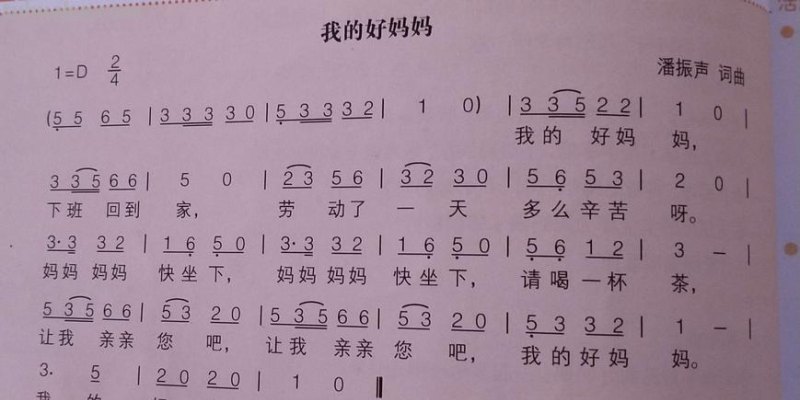 我的好妈妈
1=D 2/4
潘振声 词曲
(5 5 6 5 | 3 3 3 3 0 | 5 3 3 3 2 | 1 0) | 3 3 5 2 2 | 1 0 |
我的 好妈 妈,
3 3 5 6 6 | 5 0 | 2 3 5 6 | 3 2 3 0 | 5 6 5 3 | 2 0 |
下班 回到 家, 劳 动了 一 天 多么辛苦 呀。
3· 3 3 2 | 1 6 5 0 | 3· 3 3 2 | 1 6 5 0 | 5 6 1 2 | 3 – |
妈妈 妈妈 快坐下, 妈妈妈妈 快坐下, 请喝一杯 茶,
5 3 5 6 6 | 5 3 2 0 | 5 3 5 6 6 | 5 3 2 0 | 5 3 3 2 | 1 – |
让我 亲亲 您 吧, 让我 亲亲 您 吧, 我的好妈 妈。
3· 5 | 2 0 2 0 | 1 0 ‖